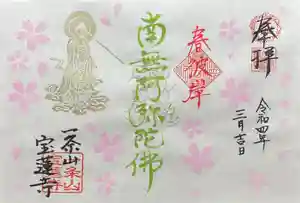 奉拝
令和四年
三月吉日
春彼岸
南無阿弥陀佛
宝蓮寺